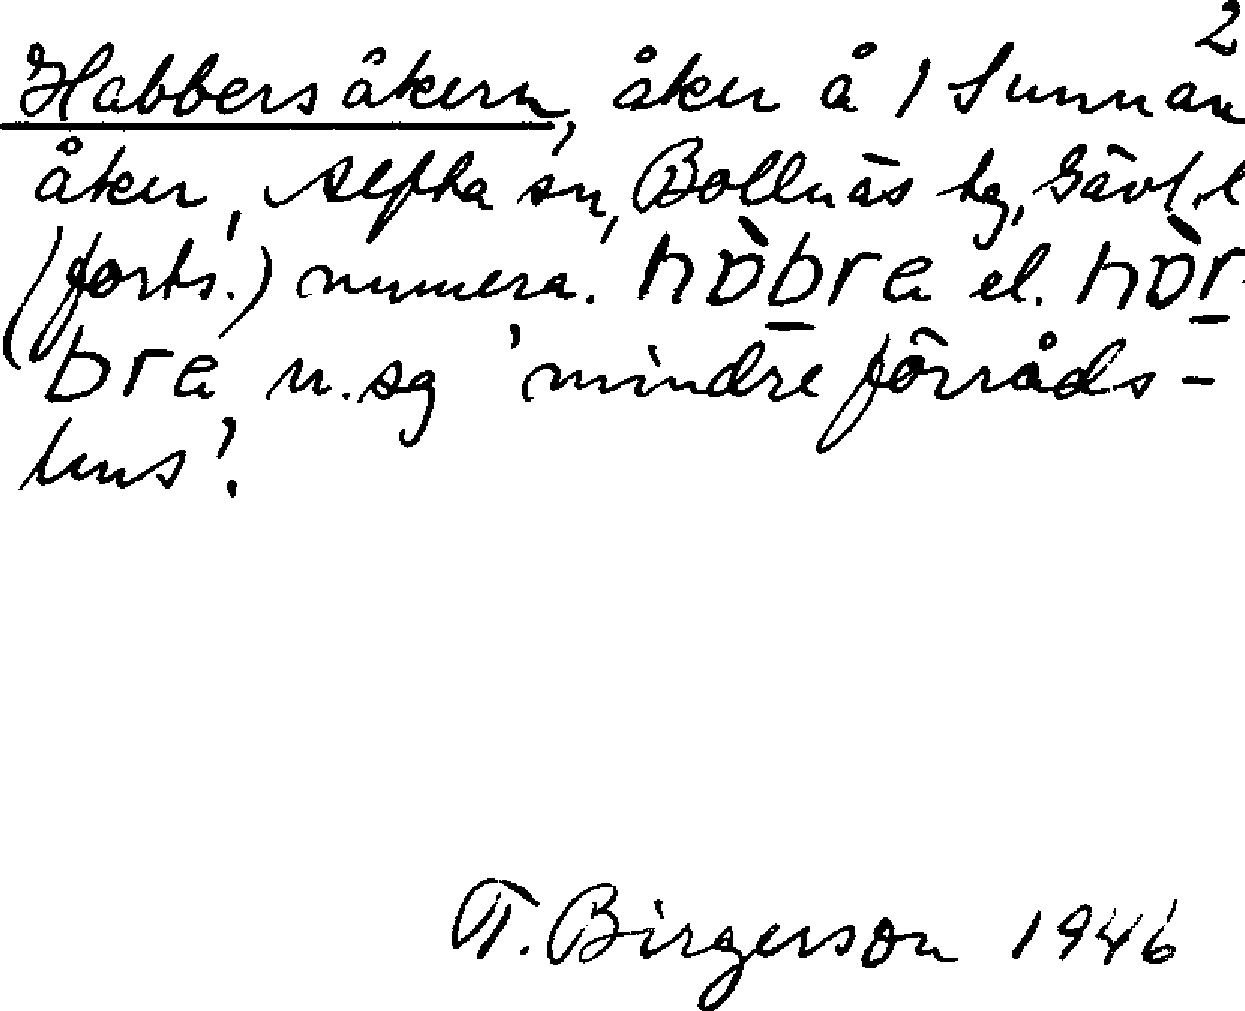 2
Habbersåkern, åker å 1 Sunnan
åker, Alfta sn, Bollnäs tg, Gävl.l
(forts.) numera. hòbra el. hòr
bra n.sg 'mindre förråds-
hus'.
T. Birgerson 1946